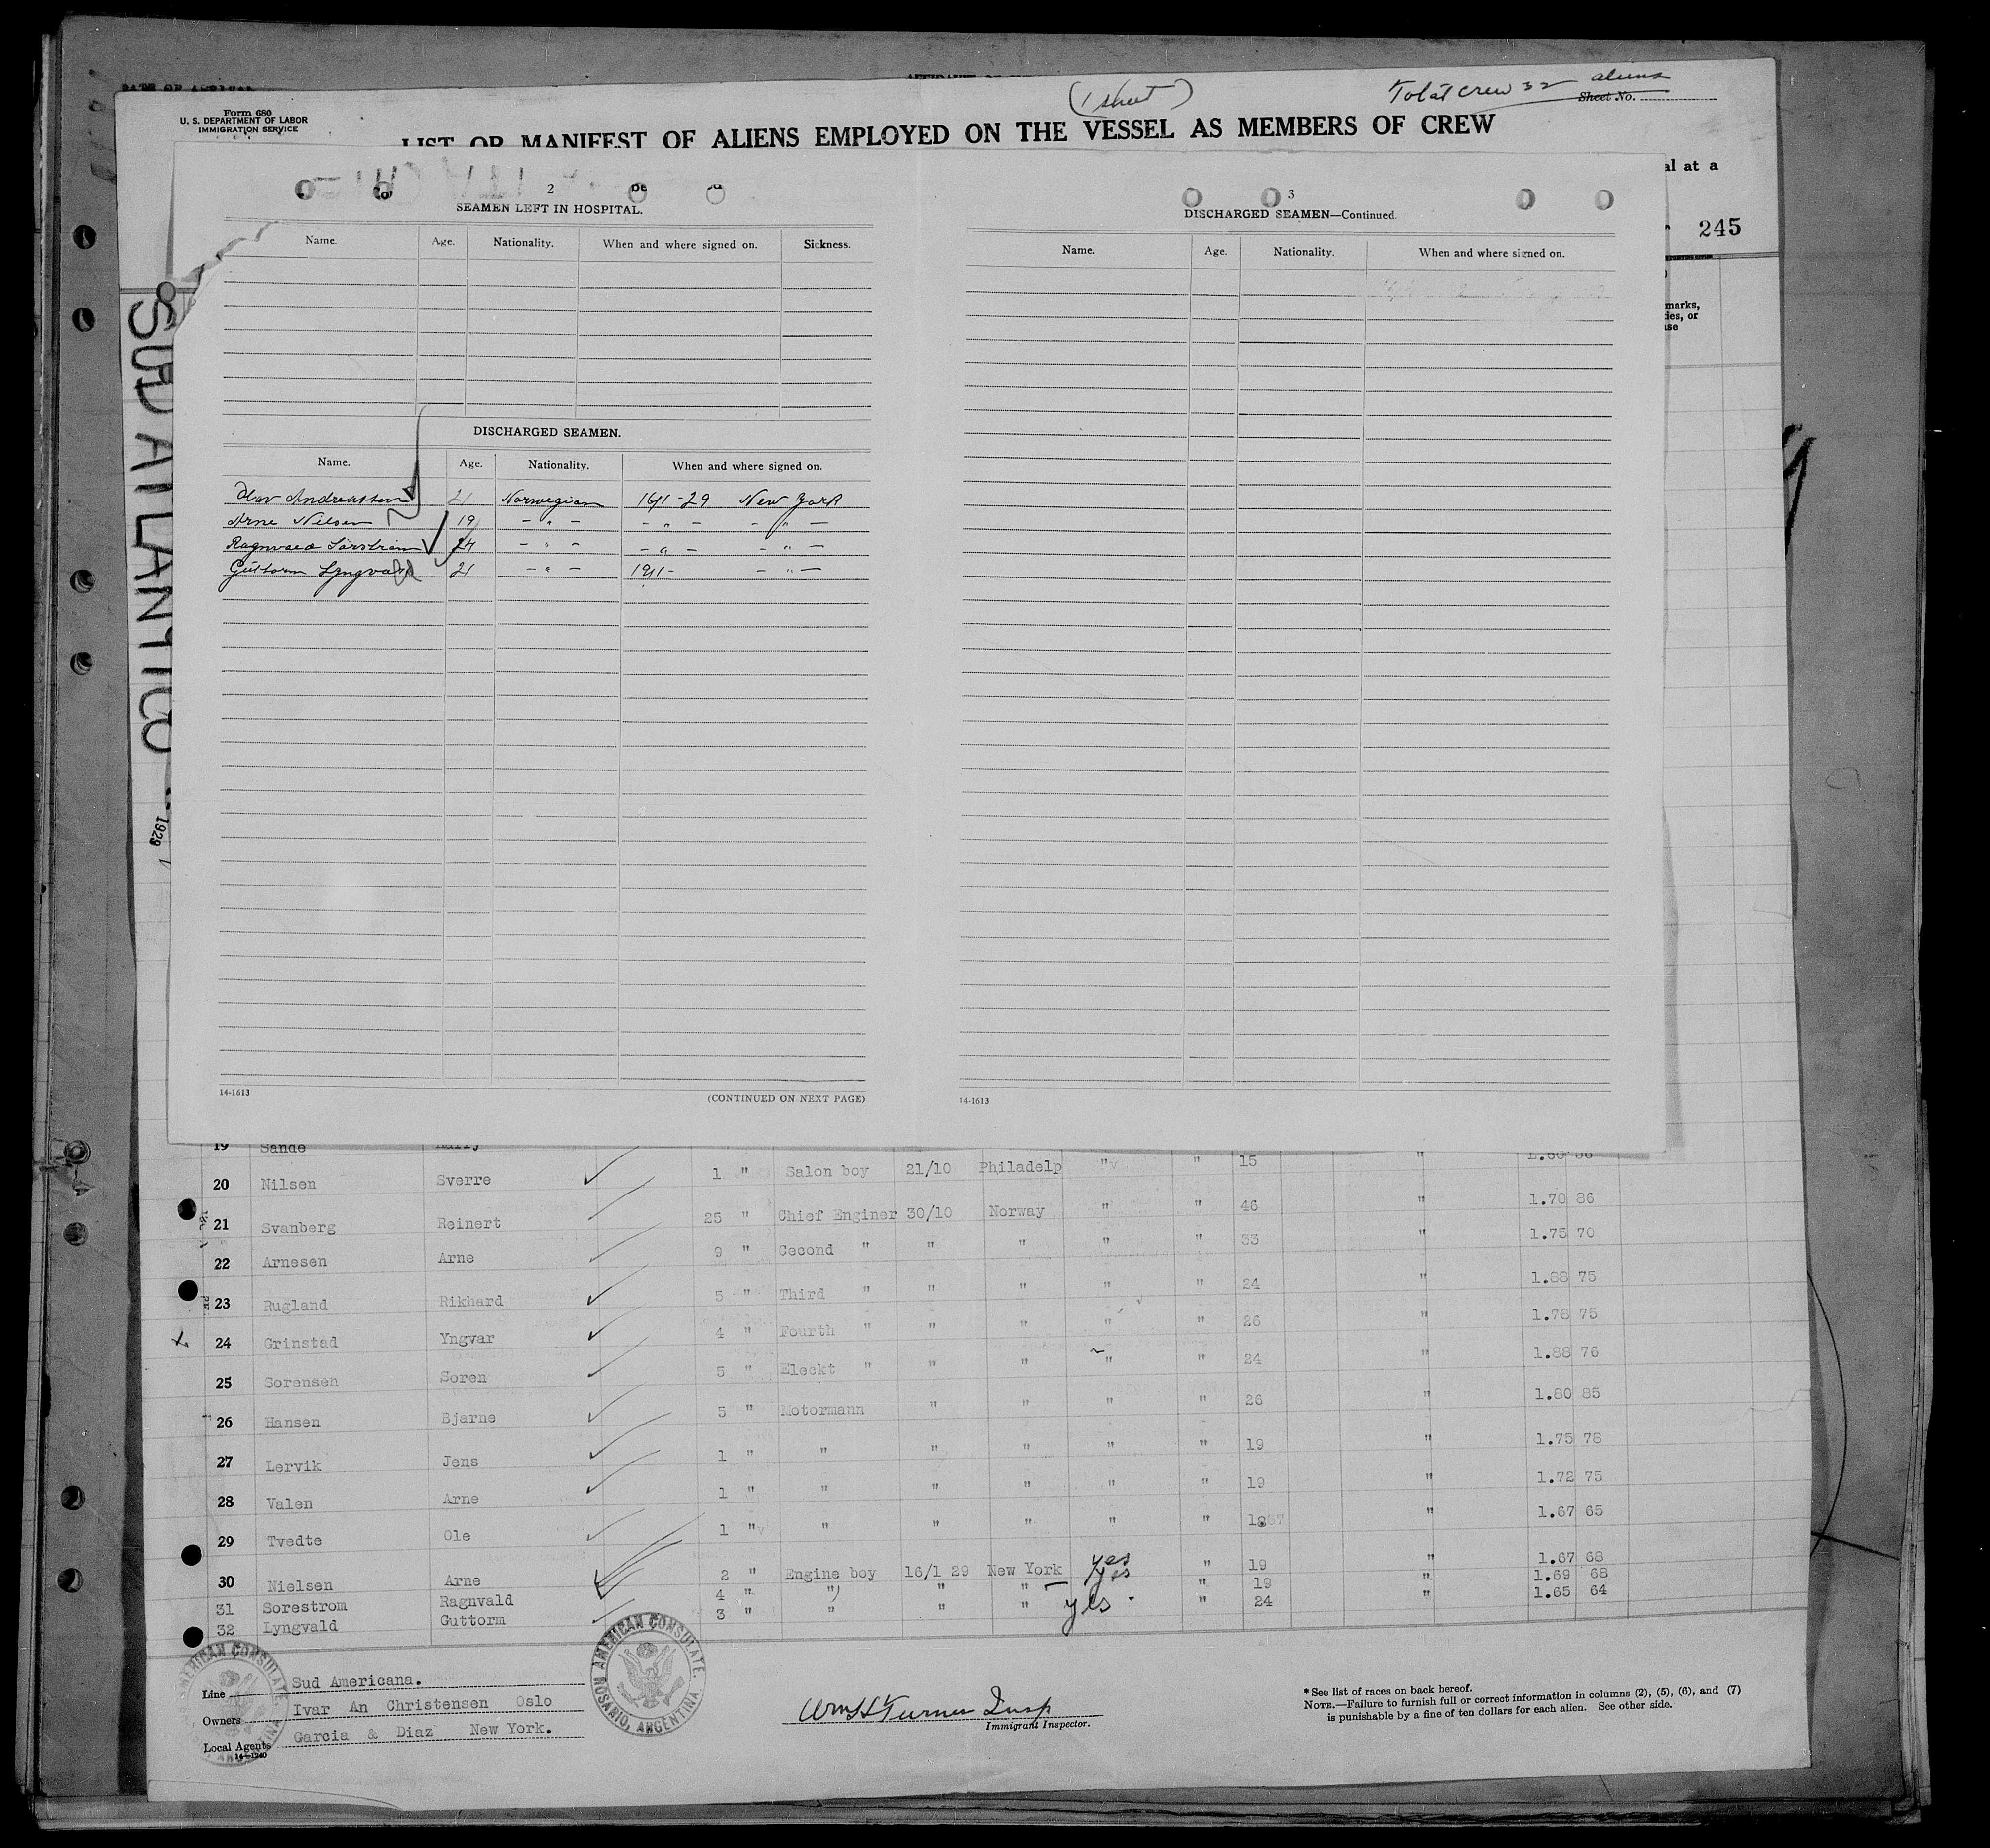 (1 sheet)
Total crew 32 aliens
Form 680
U. S. DEPARTMENT OF LABOR
IMMIGRATION SERVICE
Sheet No.
LIST OR MANIFEST OF ALIENS EMPLOYED ON THE VESSEL AS MEMBERS OF CREW
al at a
245
marks,
ies, or
ise
SUD ATLANTICO
1929
2
SEAMEN LEFT IN HOSPITAL.
Name. Age. Nationality. When and where signed on. Sickness.
DISCHARGED SEAMEN.
Name. Age. Nationality. When and where signed on.
Olav Andreassen 21 Norwegian 16/1-29 New York
Arne Nilsen 19 - " - - " - - " -
Ragnvald Sörström 24 - " - - " - - " -
Guttorm Lyngvald 21 - " - 19/1- - " -
14-1613
(CONTINUED ON NEXT PAGE)
3
DISCHARGED SEAMEN—Continued.
Name. Age. Nationality. When and where signed on.
14-1613
19 Sande Harry
20 Nilsen Sverre 1 " Salon boy 21/10 Philadelp " " 15 " 1.60 56
21 Svanberg Reinert 25 " Chief Enginer 30/10 Norway " " 46 " 1.70 86
22 Arnesen Arne 9 " Cecond " " " " " 33 " 1.75 70
23 Rugland Rikhard 5 " Third " " " " " 24 " 1.88 75
24 Grinstad Yngvar 4 " Fourth " " " " " 26 " 1.78 75
25 Sorensen Soren 5 " Eleckt " " " " " 24 " 1.88 76
26 Hansen Bjarne 5 " Motormann " " " " 26 " 1.80 85
27 Lervik Jens 1 " " " " " " 19 " 1.75 78
28 Valen Arne 1 " " " " " " 19 " 1.72 75
29 Tvedte Ole 1 " " " " " " 18 " 1.67 65
30 Nielsen Arne 2 " Engine boy 16/1 29 New York yes " 19 " 1.67 68
31 Sorestrom Ragnvald 4 " " " " yes " 19 " 1.69 68
32 Lyngvald Guttorm 3 " " " " yes " 24 " 1.65 64
AMERICAN CONSULATE.
AMERICAN CONSULATE.
ROSARIO, ARGENTINA
Line Sud Americana.
Owners Ivar An Christensen Oslo
Local Agents Garcia & Diaz New York.
14-1240
Wm S Turner Insp
Immigrant Inspector.
*See list of races on back hereof.
NOTE.—Failure to furnish full or correct information in columns (2), (5), (6), and (7)
is punishable by a fine of ten dollars for each alien. See other side.